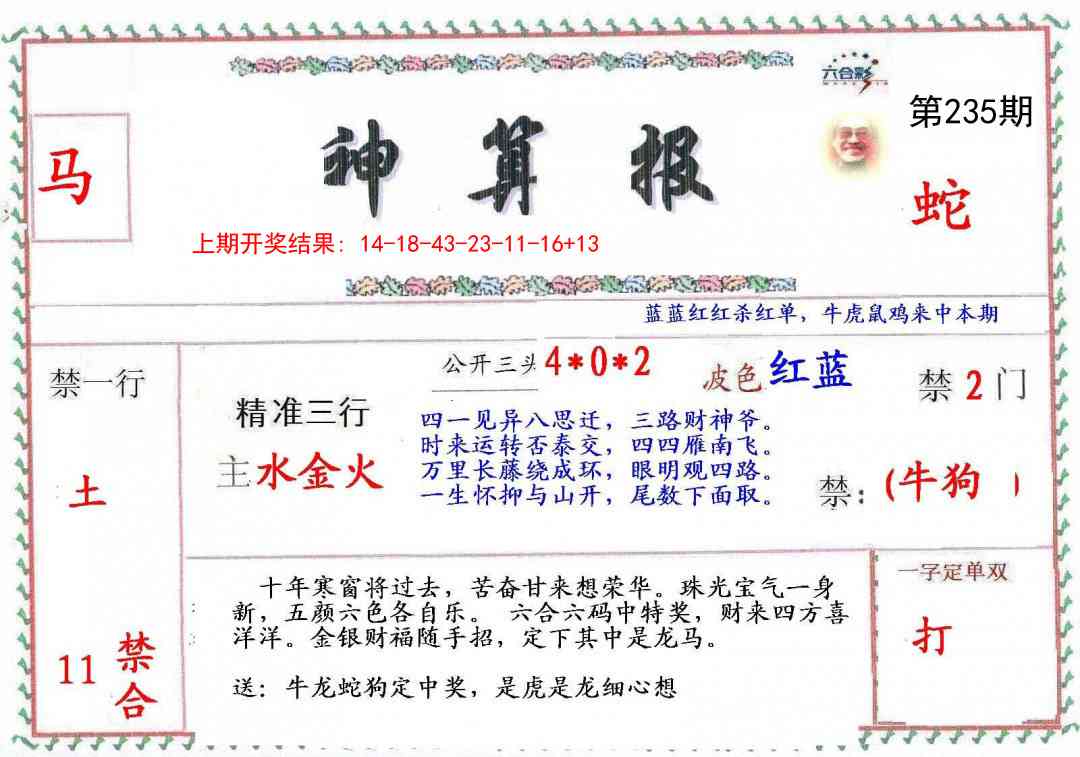 六合彩
第235期
马
神算报
蛇
上期开奖结果：14-18-43-23-11-16+13
蓝蓝红红杀红单，牛虎鼠鸡来中本期
禁一行
土
11
禁合
公开三头
4*0*2
波色
红蓝
精准三行
主水金火
四一见异八思迁，三路财神爷。
时来运转否泰交，四四雁南飞。
万里长藤绕成环，眼明观四路。
一生怀抑与山开，尾数下面取。
禁2门
禁：(牛狗 )
十年寒窗将过去，苦奋甘来想荣华。珠光宝气一身
新，五颜六色各自乐。 六合六码中特奖，财来四方喜
洋洋。金银财福随手招，定下其中是龙马。
送：牛龙蛇狗定中奖，是虎是龙细心想
一字定单双
打